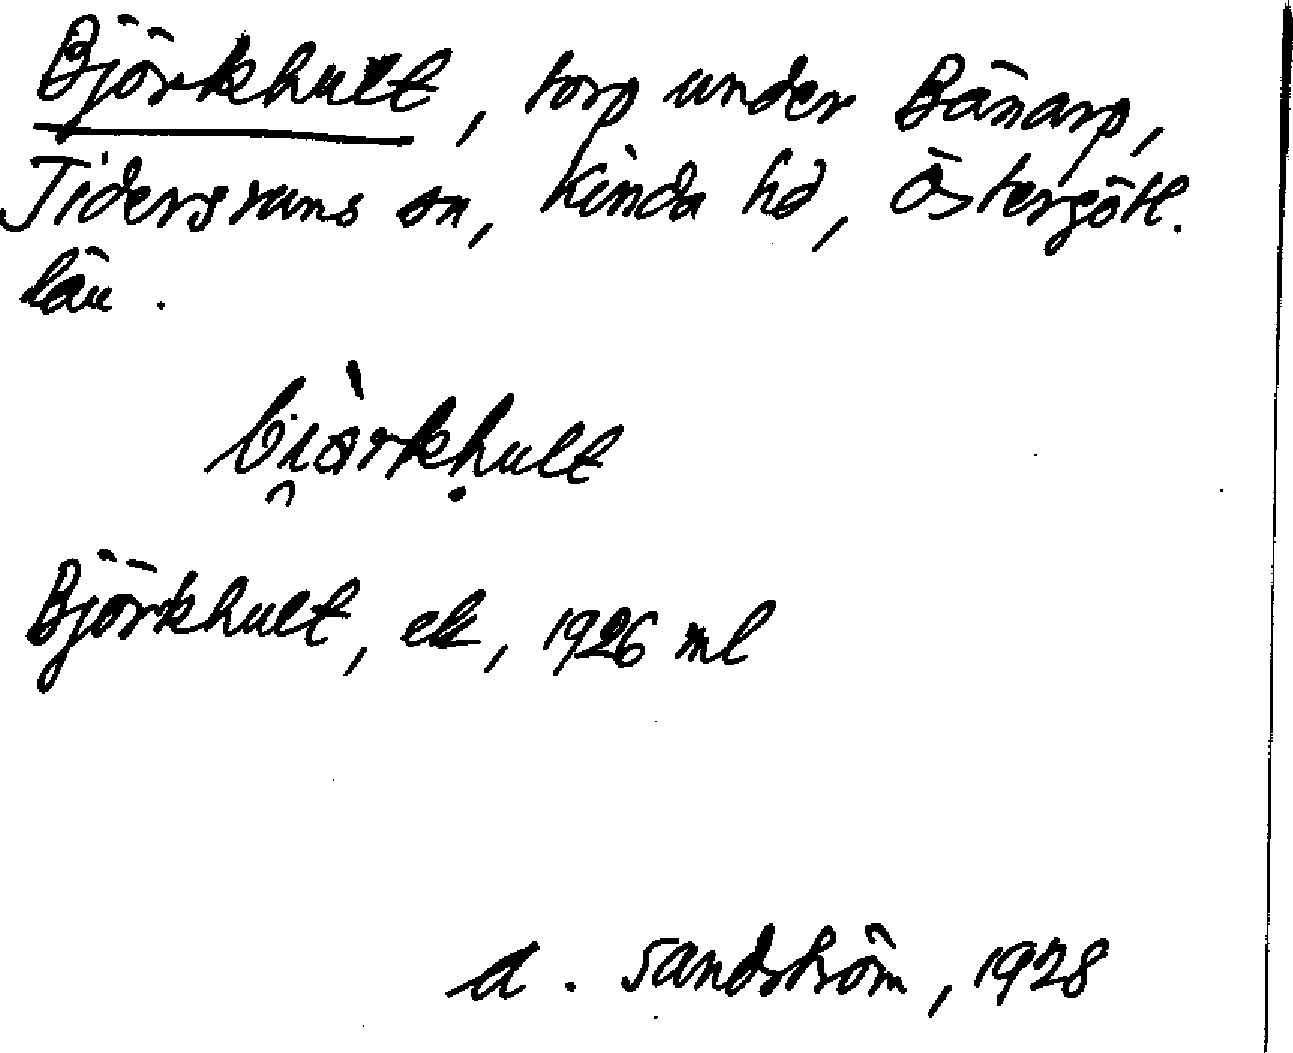 Björkhult, torp under Bänarp,
Tidersrums sn, Kinda hd, Östergötl.
län.
bi̯òrkḥult
Björkhult, ek, 1926 ml
A. Sandström, 1928